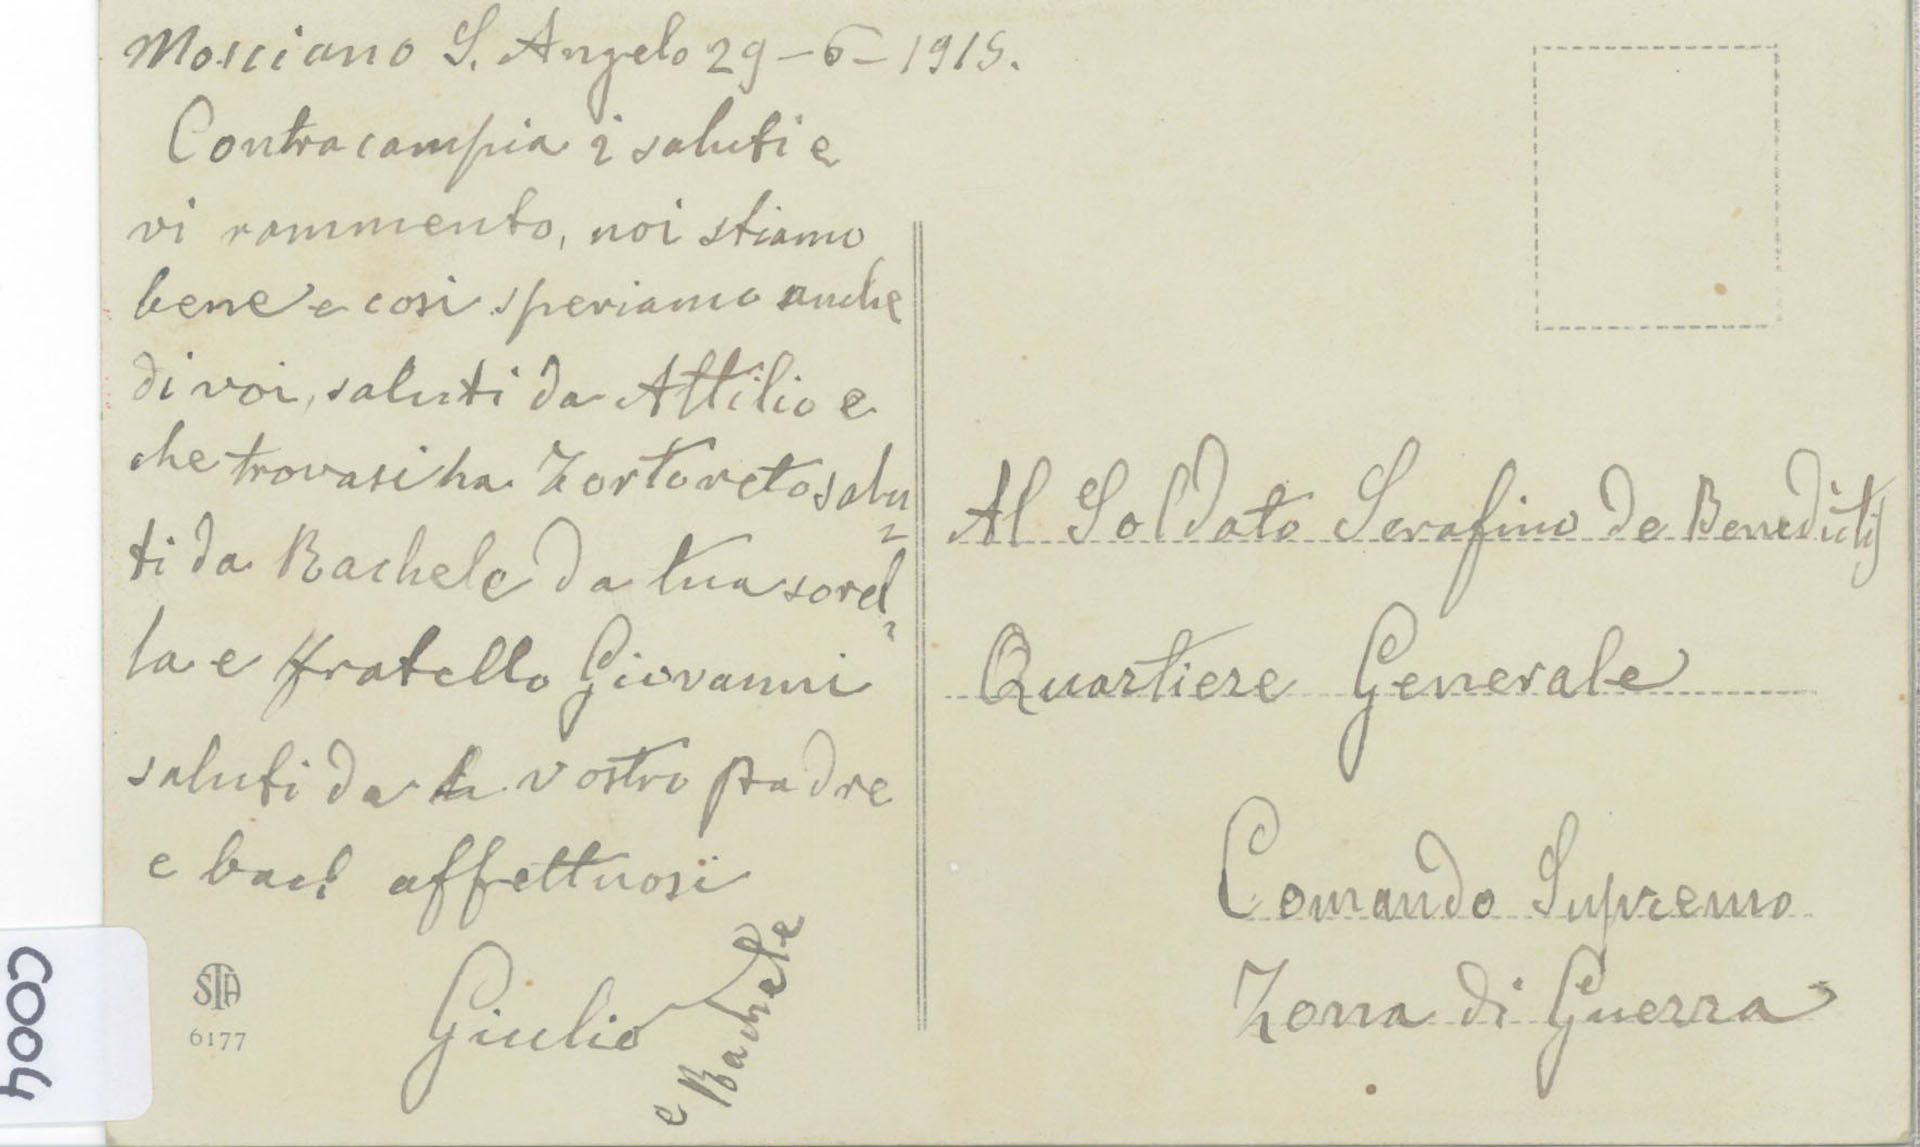 Mosciano S. Angelo 29-6-1915.
Contracampia i saluti e
vi rammento, noi stiamo
bene e cosi speriamo anche
di voi, saluti da Attilio e
che trovasi ha Tortoreto salu=
ti da Rachele da tua sorel=
la e fratello Giovanni
saluti da vostro padre
e baci affettuosi
Giulio
e Rachele
STA
6177
C004
Al Soldato Serafino de Benedictis
Quartiere Generale
Comando Supremo
Zona di Guerra